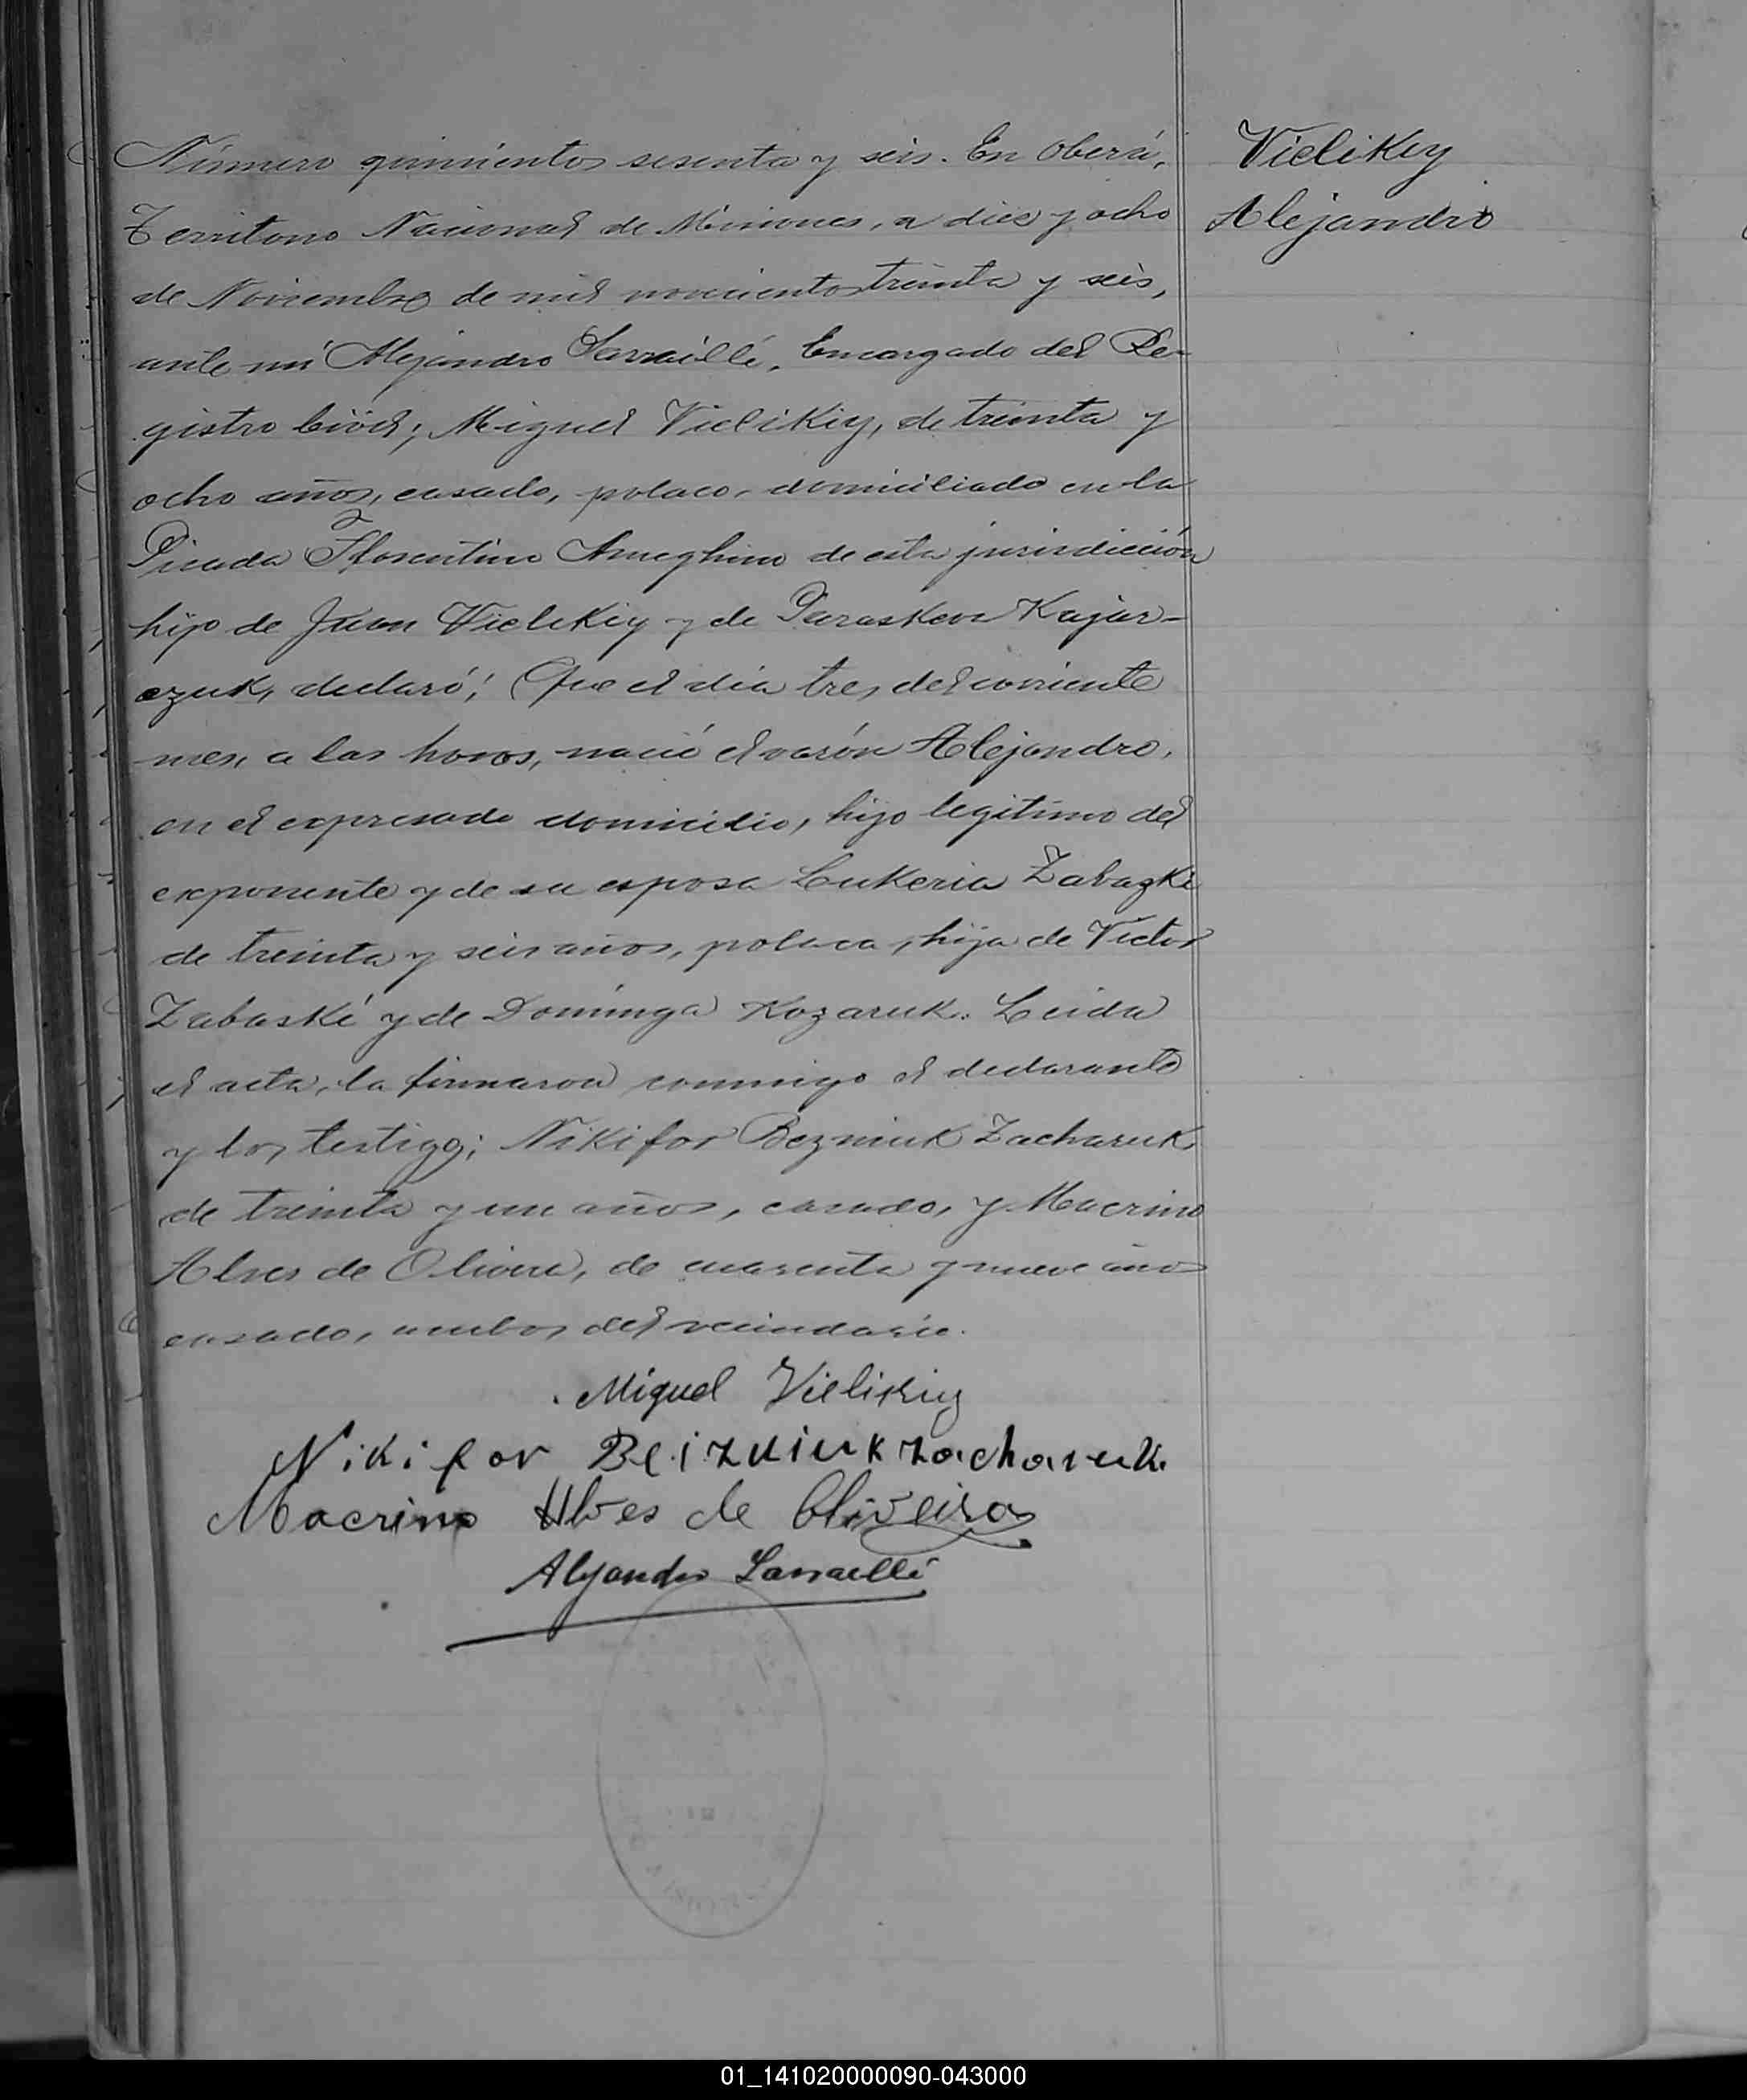 Número quinientos sesenta y seis. En Oberá,
Territorio Nacional de Misiones, a diez y ocho
de Noviembre de mil novecientos treinta y seis,
ante mí Alejandro Larraillé, Encargado del Re-
gistro Civil; Miguel Vielikiy, de treinta y
ocho años, casado, polaco, domiciliado en la
Picada Florentino Ameghino de esta jurisdicción
hijo de Juan Vielikiy y de Paraskeva Kujar-
czuk, declaró; Que el día tres del corriente
mes, a las horas, nació el varón Alejandro,
en el expresado domicilio, hijo legítimo del
exponente y de su esposa Lukeria Zabazki
de treinta y seis años, polaca, hija de Victor
Zabaski y de Dominga Kozaruk. Leida
el acta, la firmaron conmigo el declarante
y los testigos; Nikifor Bezniuk Zacharuk,
de treinta y un años, casado, y Macrino
Alves de Olivera, de cuarenta y nueve años
casado, ambos del vecindario.
Miguel Vielikiy
Nikifor Beizniuk Zacharuk
Macrino Alves de Oliveira
Alejandro Larraillé
Vielikiy
Alejandro
01_141020000090-043000